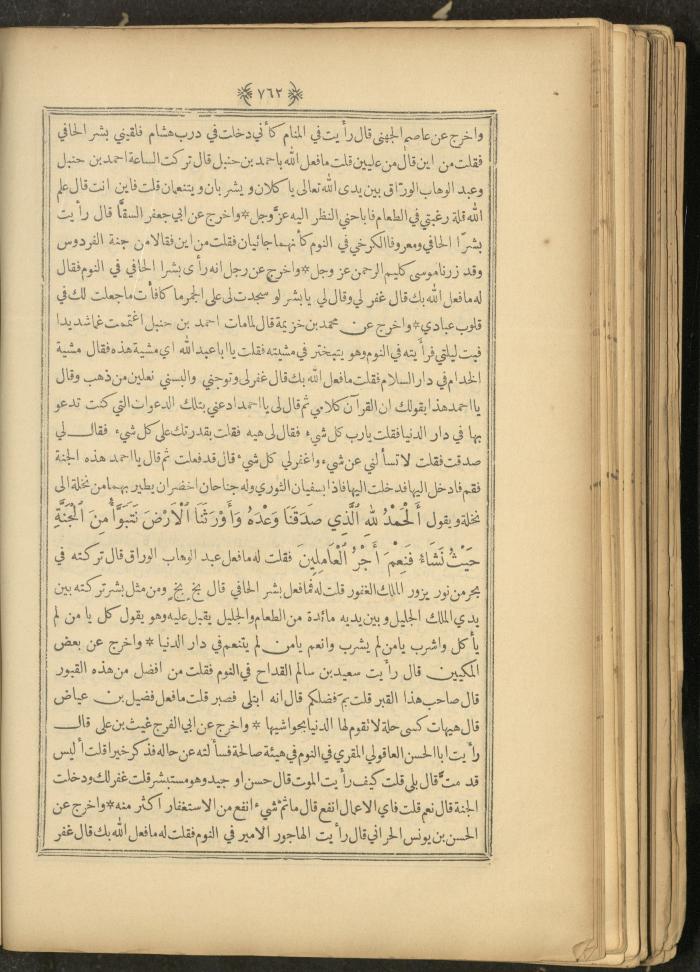 ﴿٧٦٢﴾
واخرج عن عاصم الجهني قال رأيت في المنام كأني دخلت في درب هشام فلقيني بشر الحافي
فقلت من اين قال من عليين قلت مافعل الله باحمد بن حنبل قال تركت الساعة احمد بن حنبل
وعبد الوهاب الورّاق بين يدى الله تعالى ياكلان ويشربان ويتنعمان قلت فاين انت قال علم
الله قلة رغبتي في الطعام فاباحني النظر اليه عزَّ وجل * واخرج عن ابي جعفر السقَّا قال رأيت
بشرًا الحافي ومعروفا الكرخي في النوم كأنهما جائيان فقلت من اين فقالا من جنة الفردوس
وقد زرنا موسى كليم الرحمن عز وجل * واخرج عن رجل انه رأى بشرا الحافي في النوم فقال
له مافعل الله بك قال غفر لي وقال لي يابشر لو سجدت لى على الجمر ما كافأت ما جعلت لك في
قلوب عبادي * واخرج عن محمد بن خزيمة قال لما مات احمد بن حنبل اغتممت غما شديدا
فبت ليلتي فرأيته في النوم وهو يتبختر في مشيته فقلت يا ابا عبد الله اي مشية هذه فقال مشية
الخدام في دار السلام فقلت مافعل الله بك قال غفر لى وتوجني والبسني نعلين من ذهب وقال
يااحمد هذا بقولك ان القرآن كلامي ثم قال لى يااحمد ادعني بتلك الدعوات التي كنت تدعو
بها في دار الدنيا فقلت يارب كل شيء فقال لى هيه فقلت بقدرتك على كل شيء فقال لي
صدقت فقلت لا تسألني عن شيء واغفر لي كل شيء قال قد فعلت ثم قال يااحمد هذه الجنة
فقم فادخل اليها فدخلت اليها فاذا بسفيان الثوري وله جناحان اخضران يطير بهما من نخلة الى
نخلة ويقول أَلْحَمْدُ لِلهِ ٱلَّذِي صَدَقَنَا وَعْدَهُ وَأَوْرَثَنَا ٱلْأَرْضَ نَتَبَوَّأُ مِنَ ٱلْجَنَّةِ
حَيْثُ نَشَاءُ فَنِعْمَ أَجْرُ ٱلْعَامِلِينَ فقلت له مافعل عبد الوهاب الوراق قال تركته في
بحر من نور يزور الملك الغفور قلت له فمافعل بشر الحافي قال بخ بخ ومن مثل بشر تركته بين
يدي الملك الجليل وبين يديه مائدة من الطعام والجليل يقبل عليه وهو يقول كل يا من لم
يأكل واشرب يامن لم يشرب وانعم يامن لم يتنعم في دار الدنيا * واخرج عن بعض
المكيين قال رأيت سعيد بن سالم القداح في النوم فقلت من افضل من هذه القبور
قال صاحب هذا القبر قلت بمَ فضلكم قال انه ابتلى فصبر قلت مافعل فضيل بن عياض
قال هيهات كسى حلة لا تقوم لها الدنيا بحواشيها * واخرج عن ابي الفرج غيث بن على قال
رأيت ابا الحسن العاقولي المقري في النوم في هيئة صالحة فسألته عن حاله فذكر خيرا قلت أليس
قد متَّ قال بلى قلت كيف رأيت الموت قال حسن او جيد وهو مستبشر قلت غفر لك ودخلت
الجنة قال نعم قلت فاي الاعمال انفع قال ماثمَّ شيء انفع من الاستغفار اكثر منه * واخرج عن
الحسن بن يونس الحراني قال رأيت الهاجور الامير في النوم فقلت له مافعل الله بك قال غفر